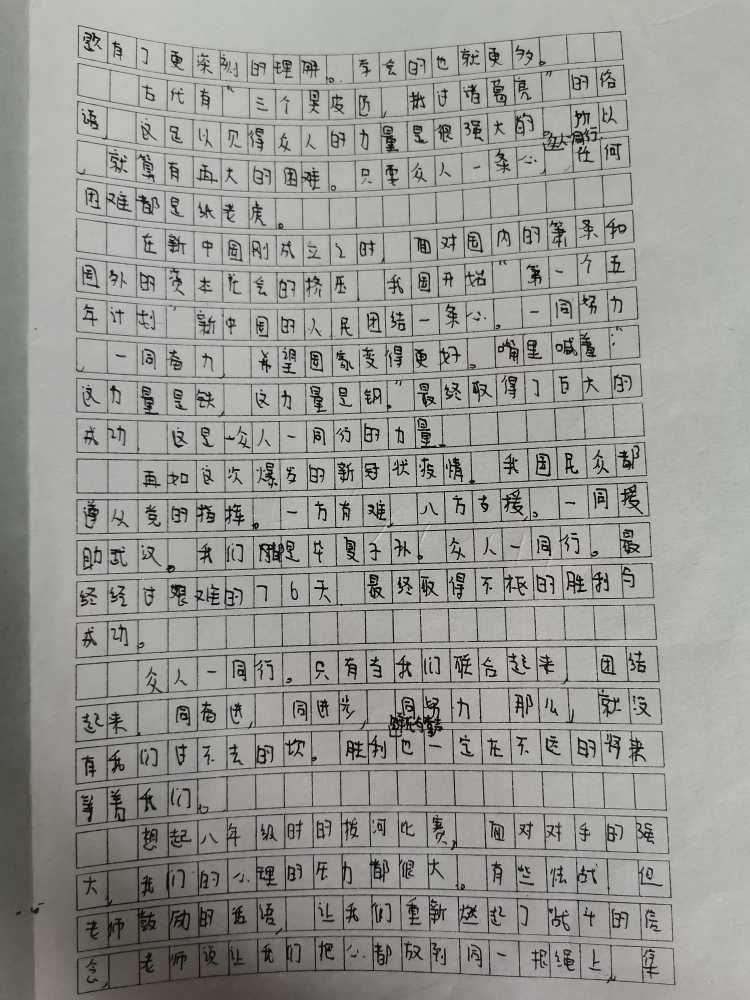 题有了更深刻的理解。学会的也就更多。
古代有“三个臭皮匠，抵过诸葛亮”的俗
语，这足以见得众人的力量是很强大的，所以
众人一同行，
，就算有再大的困难。只要众人一条心，任何
困难都是纸老虎。
在新中国刚成立之时，面对国内的萧条和
国外的资本社会的挤压，我国开始“第一个五
年计划”，新中国的人民团结一条心。一同努力
，一同奋力，希望国家变得更好。嘴里喊着：“
这力量是铁，这力量是钢。”最终取得了巨大的
成功，这是众人一同行的力量。
再如这次爆发的新冠状疫情。我国民众都
遵从党的指挥。一方有难，八方支援。一同援
助武汉。我们都是华夏子孙。众人一同行。最
终经过艰难的76天，最终取得不朽的胜利与
成功。
众人一同行。只有当我们联合起来，团结
起来，同奋进，同进步，同努力，那么，就没
有我们过不去的坎。胜利也一定在不远的将来
等着我们。
想起八年级时的拔河比赛，面对对手的强
大，我们的心理的压力都很大。有些怯战，但
老师鼓励的话语，让我们重新燃起了战斗的信
念，老师说让我们把心都放到同一根绳上，集